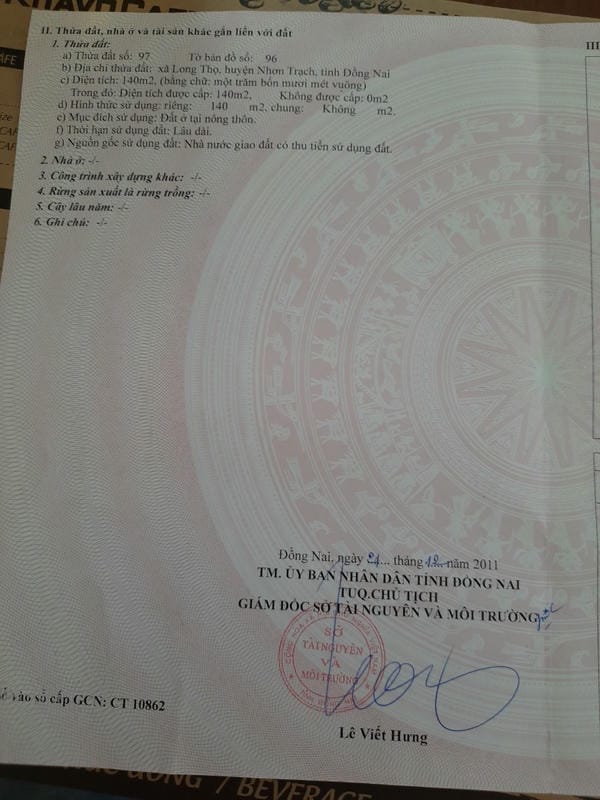 KHAVN CAFE
II. Thửa đất, nhà ở và tài sản khác gắn liền với đất
III
1. Thửa đất:
a) Thửa đất số: 97 Tờ bản đồ số: 96
b) Địa chỉ thửa đất: xã Long Thọ, huyện Nhơn Trạch, tỉnh Đồng Nai
c) Diện tích: 140m2, (bằng chữ: một trăm bốn mươi mét vuông)
Trong đó: Diện tích được cấp: 140m2, Không được cấp: 0m2
d) Hình thức sử dụng: riêng: 140 m2, chung: Không m2.
e) Mục đích sử dụng: Đất ở tại nông thôn.
f) Thời hạn sử dụng đất: Lâu dài.
g) Nguồn gốc sử dụng đất: Nhà nước giao đất có thu tiền sử dụng đất.
2. Nhà ở: -/-
3. Công trình xây dựng khác: -/-
4. Rừng sản xuất là rừng trồng: -/-
5. Cây lâu năm: -/-
6. Ghi chú: -/-
Đồng Nai, ngày 21... tháng 12... năm 2011
TM. ỦY BAN NHÂN DÂN TỈNH ĐỒNG NAI
TUQ.CHỦ TỊCH
GIÁM ĐỐC SỞ TÀI NGUYÊN VÀ MÔI TRƯỜNG
SỞ
TÀI NGUYÊN
VÀ
MÔI TRƯỜNG
vào sổ cấp GCN: CT 10862
Lê Viết Hưng
/ BEVERAGE